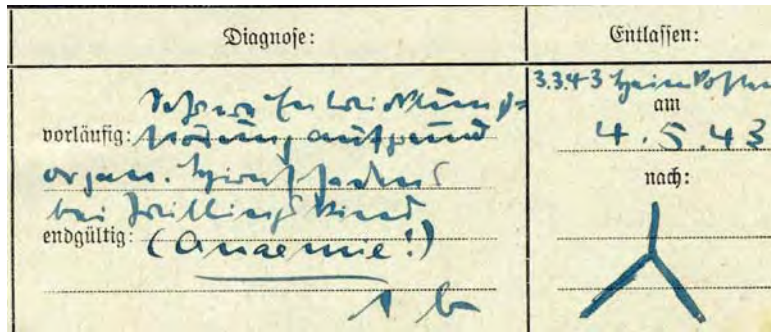 Diagnose:
Entlassen:
Schwere Entwicklungs=
vorläufig: störung aufgrund
organ. Hirnschadens
bei Zwillingskind
endgültig: (Anaemie!)
1 b
3.3.43
am
4.5.43
nach: